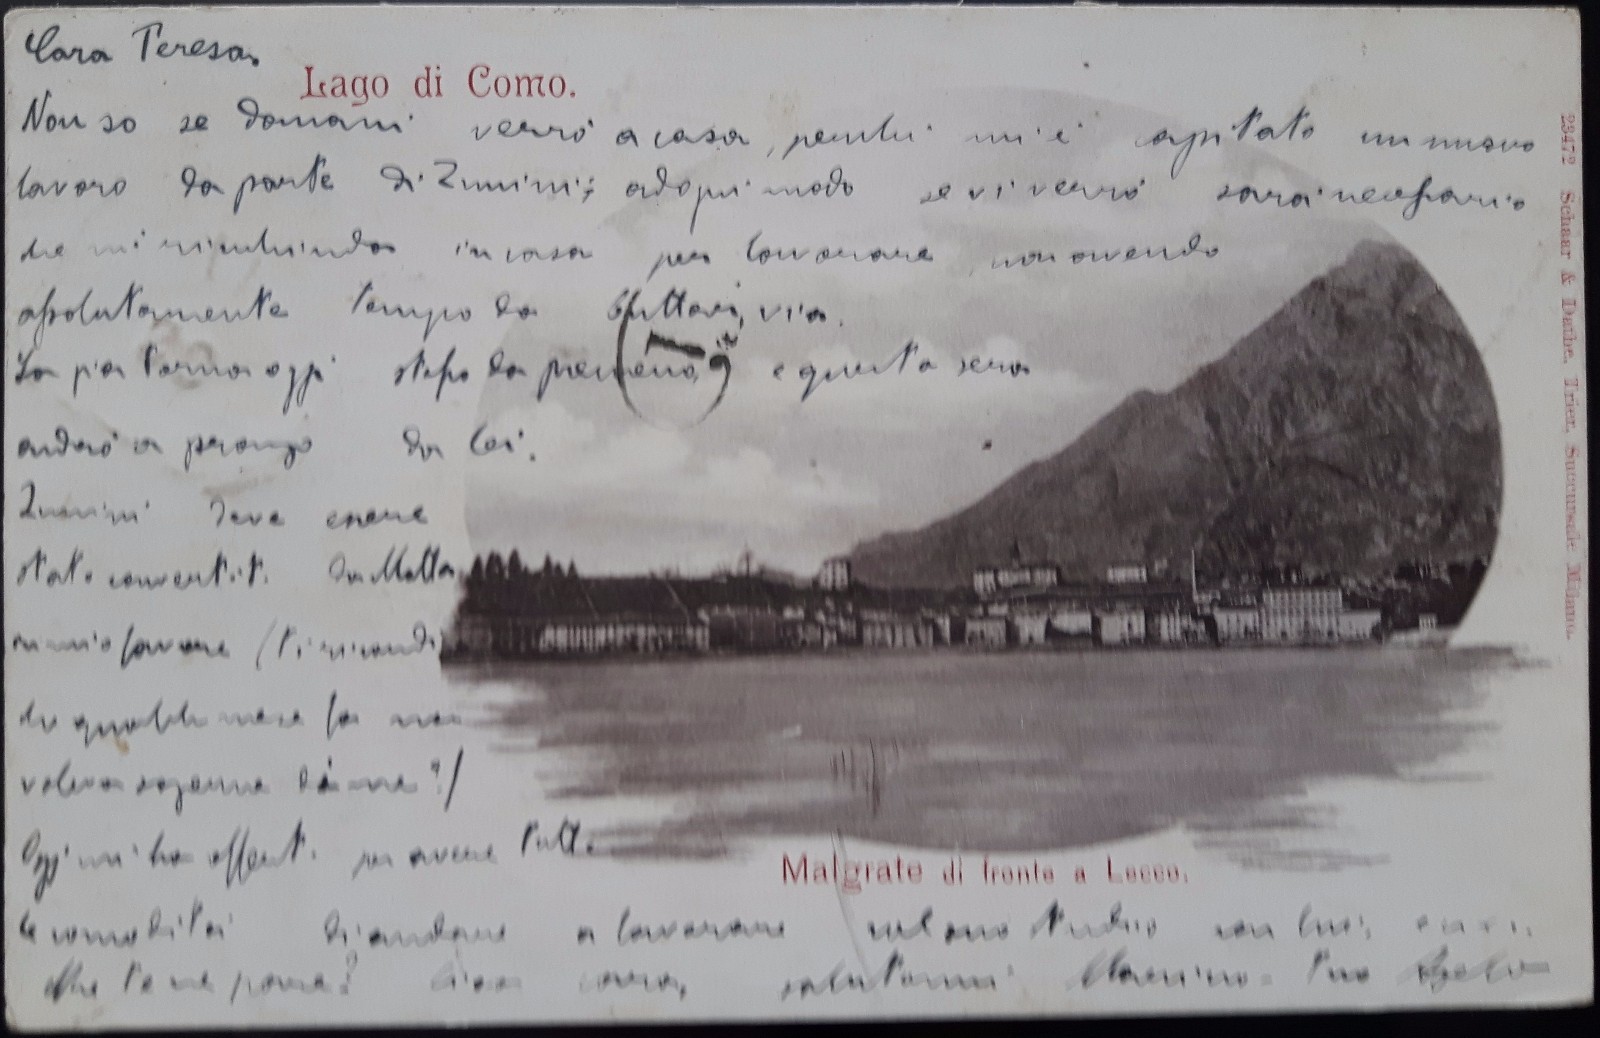 Cara Teresa.
Lago di Como.
Non so se domani verrò a casa, perchè mi è capitato un nuovo
lavoro da parte di Zunini; ad ogni modo se vi verrò sarà necessario
che mi rinchiuda in casa per lavorare, non avendo
assolutamente tempo da buttar via.
La zia torna oggi stesso da e questa sera
andrò a pranzo da lei.
Zunini deve essere
stato convertito da Motta
in mio favore (ti ricordi
che qualche mese fa non
voleva saperne di me?)
Oggi mi ha offerto per avere tutte
le comodità di andare a lavorare nel suo studio con lui,
Che te ne pare? Ciao cara, salutami Tuo
Malgrate di fronte a Lecco.
23472 Schaar & Dathe, Trier, Succursale Milano.